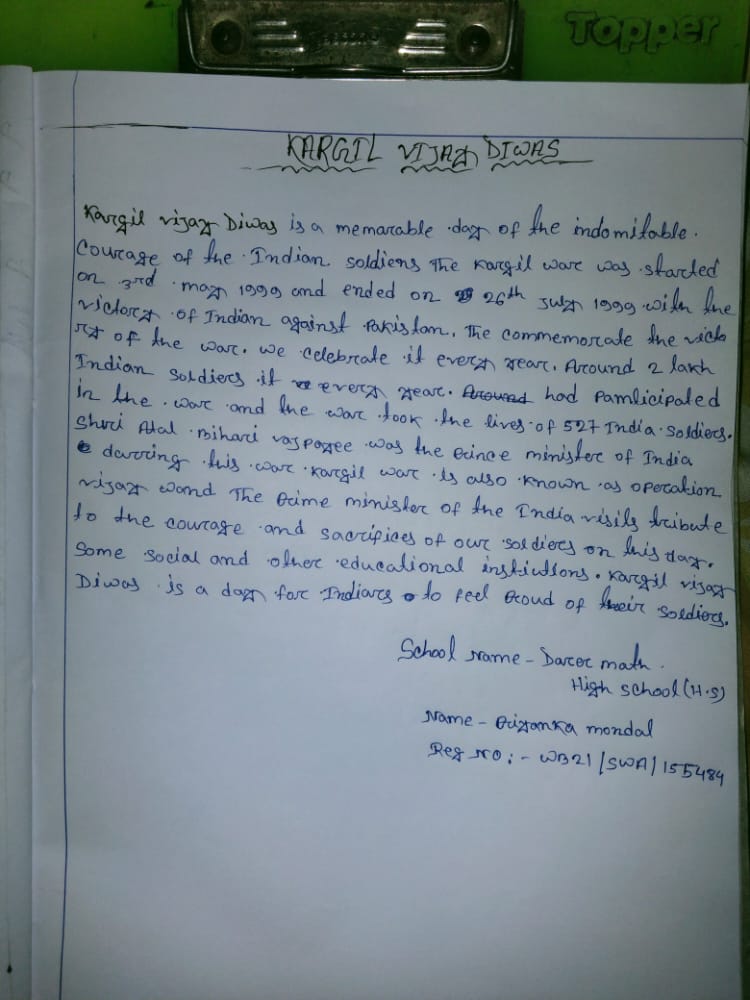 Topper
KARGIL VIJAY DIWAS
Kargil vijay Diwas is a memarable day of the indomitable.
Courage of the Indian. soldiens The Kargil war was started
on 3rd may 1999 and ended on 26th July 1999 with the
victory of Indian against Pakistan. The commemorate the victo
ry of the war. we celebrate it every year. Around 2 lakh
Indian Soldiers it every year. Around had Pamlicipated
in the war and the war took the lives of 527 India soldiers.
Shri Atal Bihari vajpayee was the Prince minister of India
darring this war Kargil war is also known as operation
vijay wand The Prime minister of the India visits tribute
to the courage and sacrifices of our soldiers on this day.
Some social and other educational instituttons. Kargil vijay
Diwas is a day for Indians to feel Proud of their soldiers.
School Name - Darer math.
High school (H.S)
Name - Priyanka mondal
Reg No: - WB21/SWA/155484